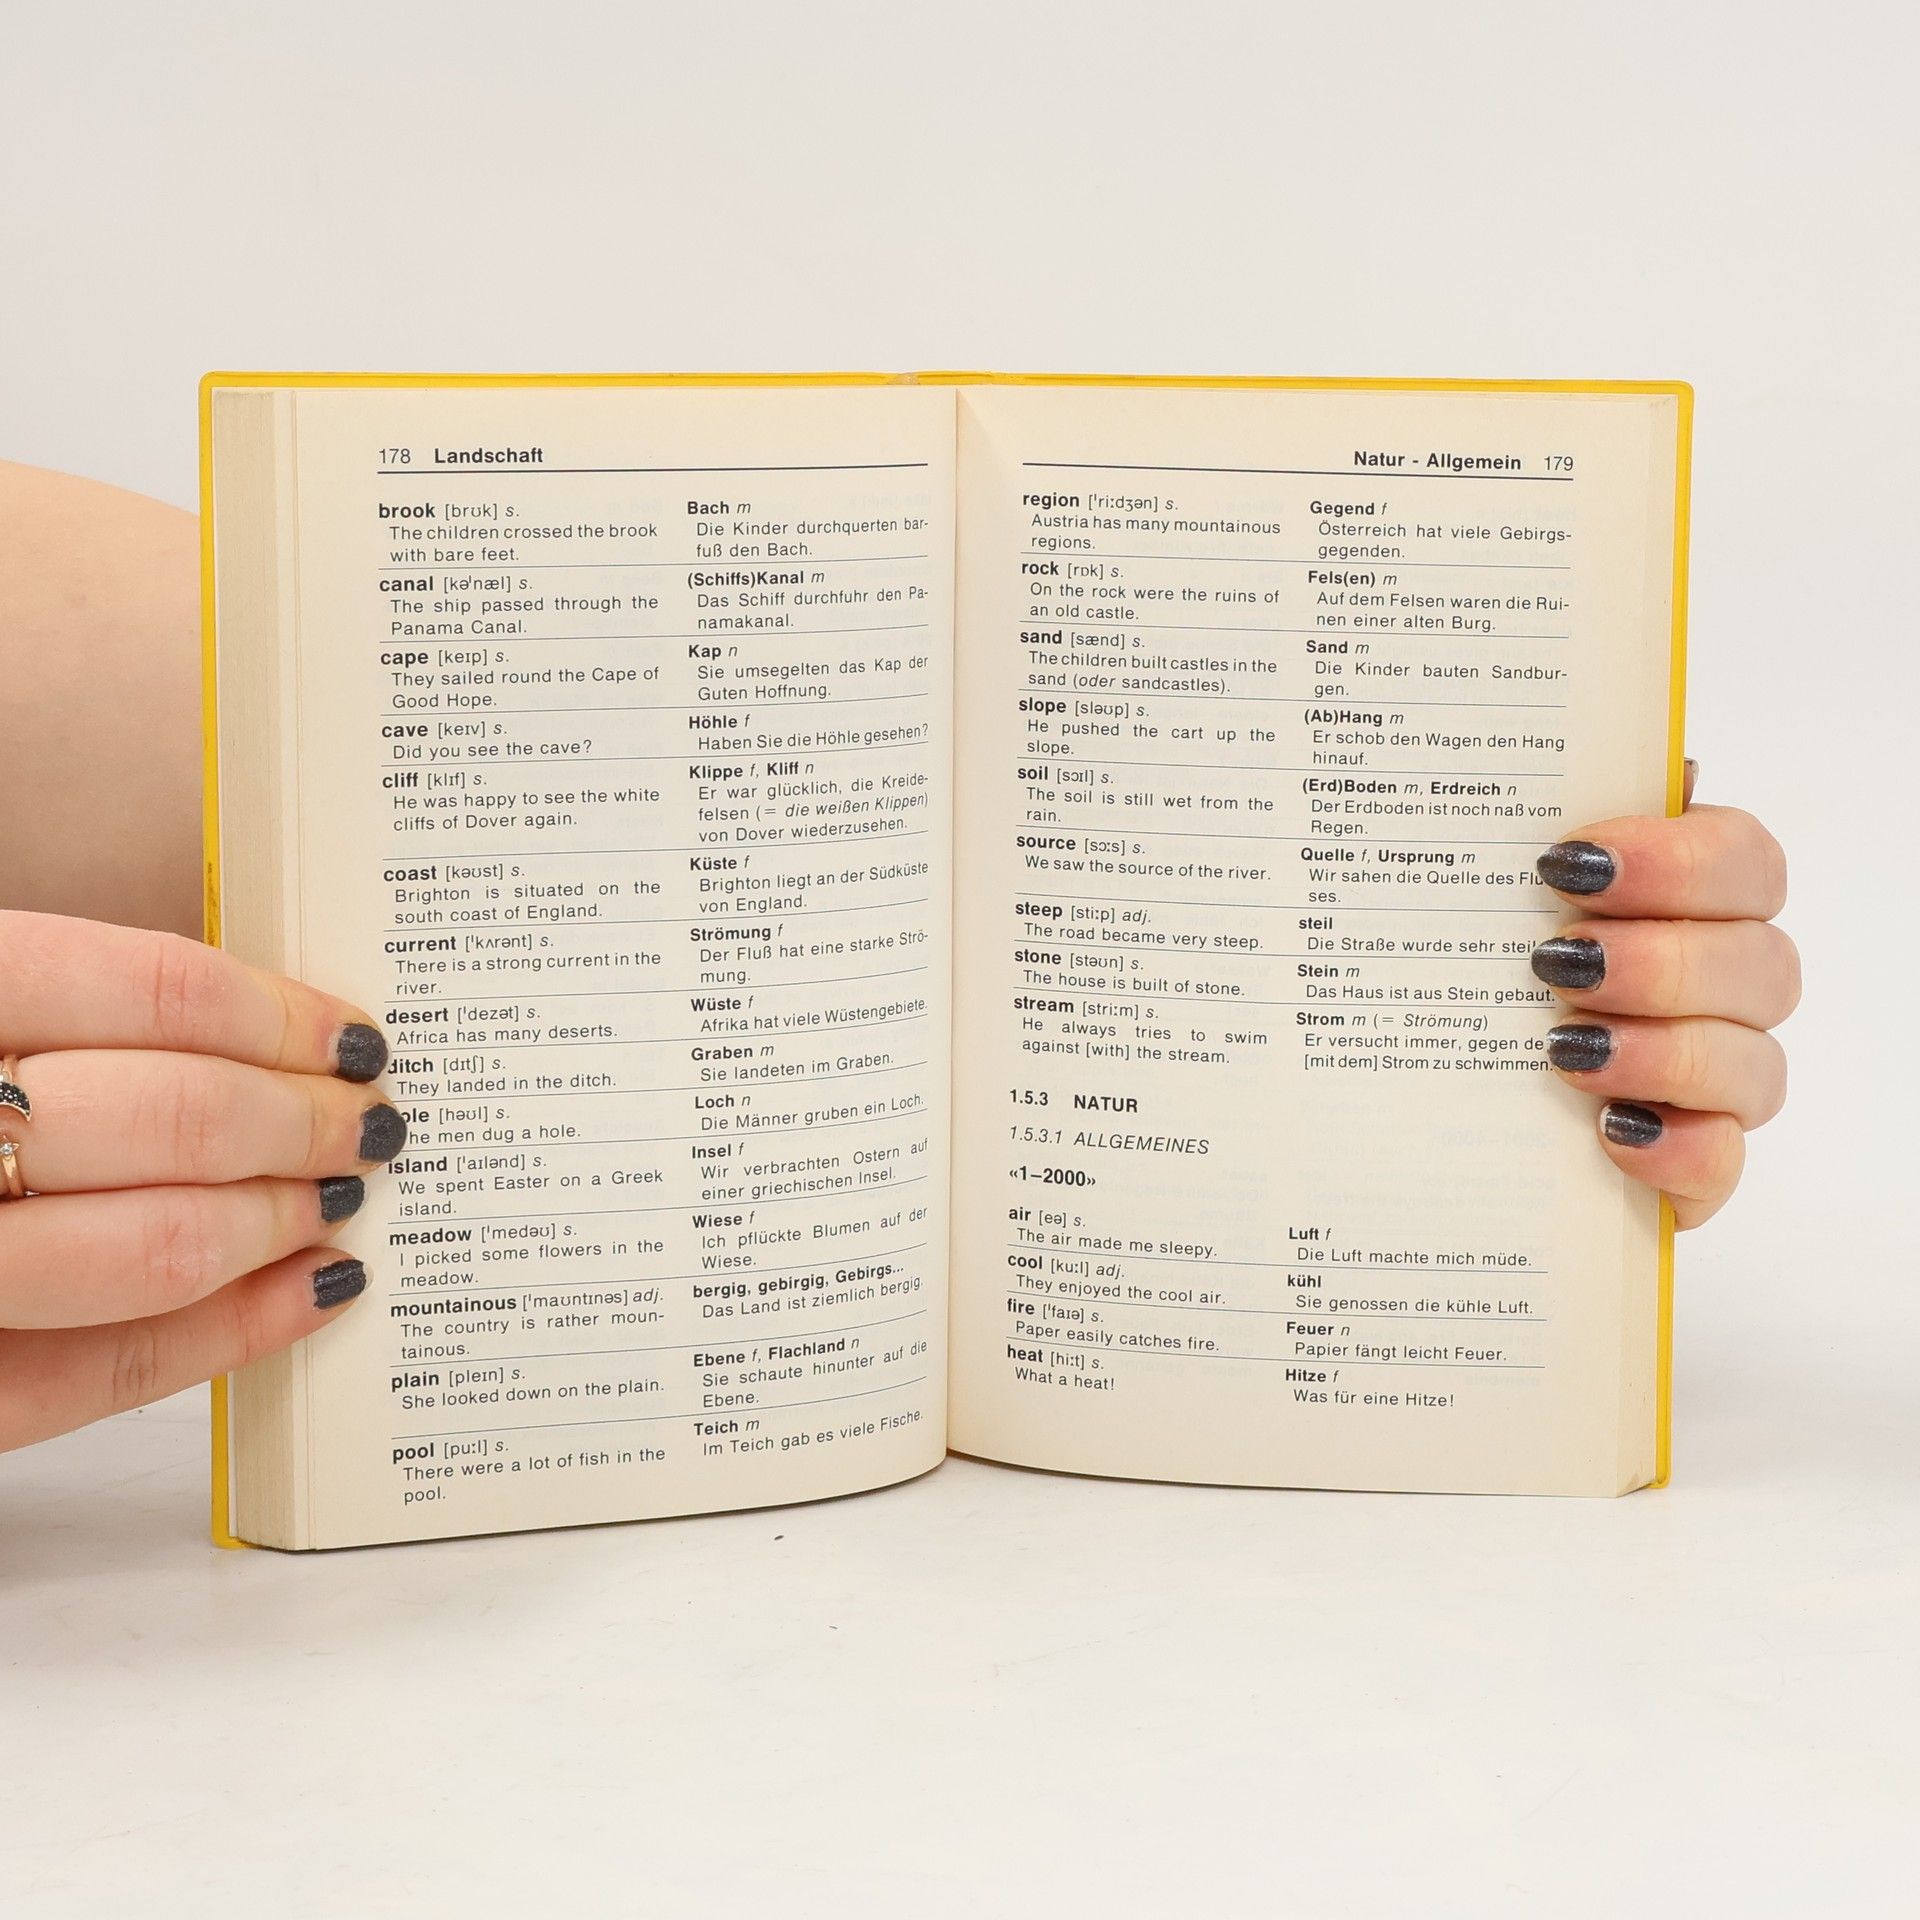 178 Landschaft
brook [brʊk] s.
The children crossed the brook
with bare feet.
Bach m
Die Kinder durchquerten bar-
fuß den Bach.
canal [kəˈnæl] s.
The ship passed through the
Panama Canal.
(Schiffs)Kanal m
Das Schiff durchfuhr den Pa-
namakanal.
cape [keɪp] s.
They sailed round the Cape of
Good Hope.
Kap n
Sie umsegelten das Kap der
Guten Hoffnung.
cave [keɪv] s.
Did you see the cave?
Höhle f
Haben Sie die Höhle gesehen?
cliff [klɪf] s.
He was happy to see the white
cliffs of Dover again.
Klippe f, Kliff n
Er war glücklich, die Kreide-
felsen (= die weißen Klippen)
von Dover wiederzusehen.
coast [kəʊst] s.
Brighton is situated on the
south coast of England.
Küste f
Brighton liegt an der Südküste
von England.
current [ˈkʌrənt] s.
There is a strong current in the
river.
Strömung f
Der Fluß hat eine starke Strö-
mung.
desert [ˈdezət] s.
Africa has many deserts.
Wüste f
Afrika hat viele Wüstengebiete.
ditch [dɪtʃ] s.
They landed in the ditch.
Graben m
Sie landeten im Graben.
ole [həʊl] s.
he men dug a hole.
Loch n
Die Männer gruben ein Loch.
island [ˈaɪlənd] s.
We spent Easter on a Greek
island.
Insel f
Wir verbrachten Ostern auf
einer griechischen Insel.
meadow [ˈmedəʊ] s.
I picked some flowers in the
meadow.
Wiese f
Ich pflückte Blumen auf der
Wiese.
mountainous [ˈmaʊntɪnəs] adj.
The country is rather moun-
tainous.
bergig, gebirgig, Gebirgs...
Das Land ist ziemlich bergig.
plain [pleɪn] s.
She looked down on the plain.
Ebene f, Flachland n
Sie schaute hinunter auf die
Ebene.
pool [puːl] s.
There were a lot of fish in the
pool.
Teich m
Im Teich gab es viele Fische.
Natur - Allgemein 179
region [ˈriːdʒən] s.
Austria has many mountainous
regions.
Gegend f
Österreich hat viele Gebirgs-
gegenden.
rock [rɒk] s.
On the rock were the ruins of
an old castle.
Fels(en) m
Auf dem Felsen waren die Rui-
nen einer alten Burg.
sand [sænd] s.
The children built castles in the
sand (oder sandcastles).
Sand m
Die Kinder bauten Sandbur-
gen.
slope [sləʊp] s.
He pushed the cart up the
slope.
(Ab)Hang m
Er schob den Wagen den Hang
hinauf.
soil [sɔɪl] s.
The soil is still wet from the
rain.
(Erd)Boden m, Erdreich n
Der Erdboden ist noch naß vom
Regen.
source [sɔːs] s.
We saw the source of the river.
Quelle f, Ursprung m
Wir sahen die Quelle des Flu
ses.
steep [stiːp] adj.
The road became very steep.
steil
Die Straße wurde sehr steil
stone [stəʊn] s.
The house is built of stone.
Stein m
Das Haus ist aus Stein gebaut.
stream [striːm] s.
He always tries to swim
against [with] the stream.
Strom m (= Strömung)
Er versucht immer, gegen de
[mit dem] Strom zu schwimmen.
1.5.3 NATUR
1.5.3.1 ALLGEMEINES
«1–2000»
air [eə] s.
The air made me sleepy.
Luft f
Die Luft machte mich müde.
cool [kuːl] adj.
They enjoyed the cool air.
kühl
Sie genossen die kühle Luft.
fire [ˈfaɪə] s.
Paper easily catches fire.
Feuer n
Papier fängt leicht Feuer.
heat [hiːt] s.
What a heat!
Hitze f
Was für eine Hitze!